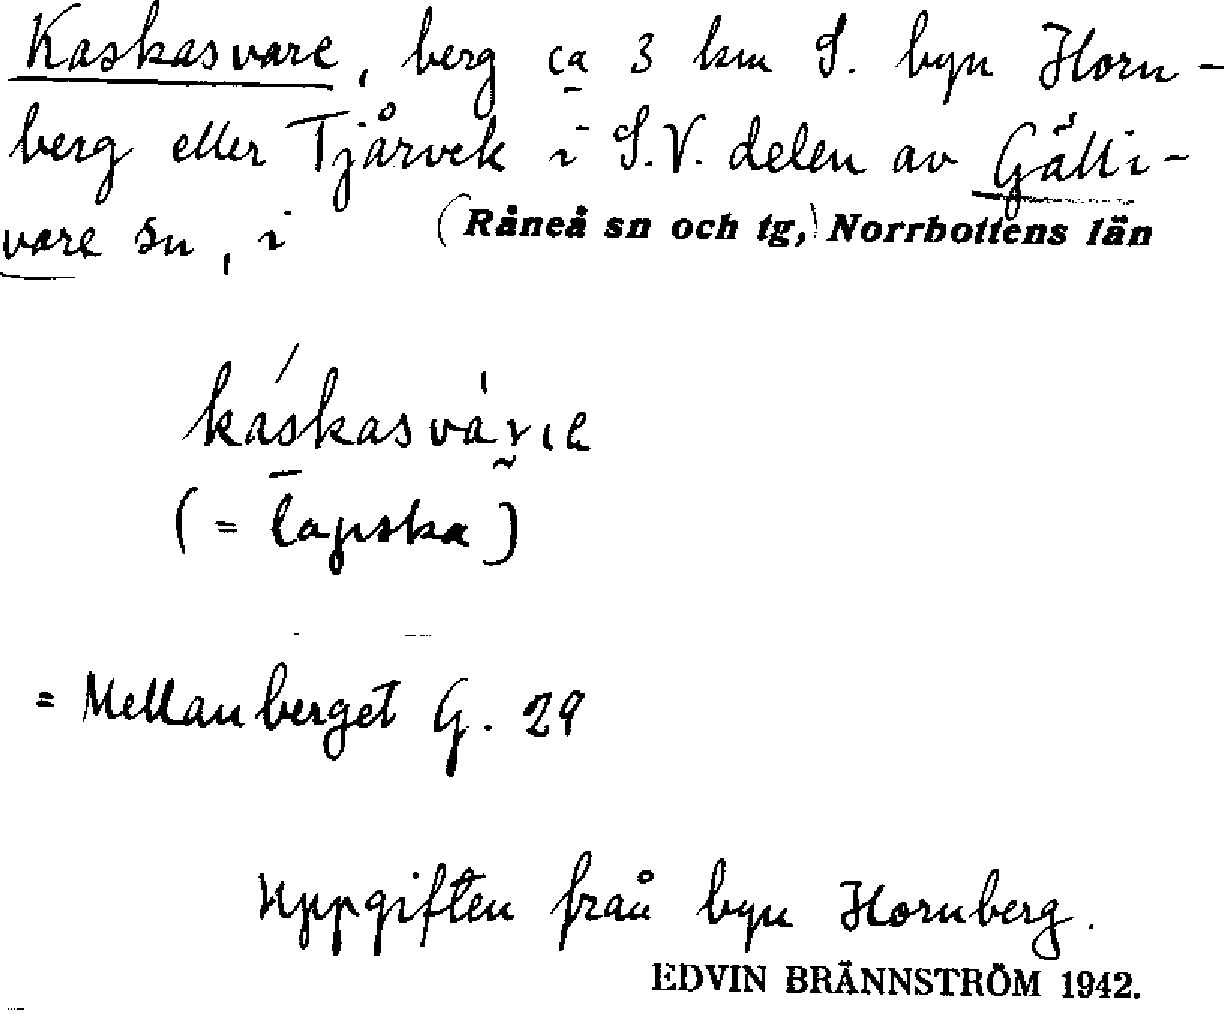 Kaskasvare, berg ca 3 km S. byn Horn-
berg eller Tjårvek i S.V. delen av Gälli-
vare sn, i (Råneå sn och tg,) Norrbottens län
káskasvàrıe
(= lapska)
= Mellanberget G. 29
Uppgiften från byn Hornberg.
EDVIN BRÄNNSTRÖM 1942.